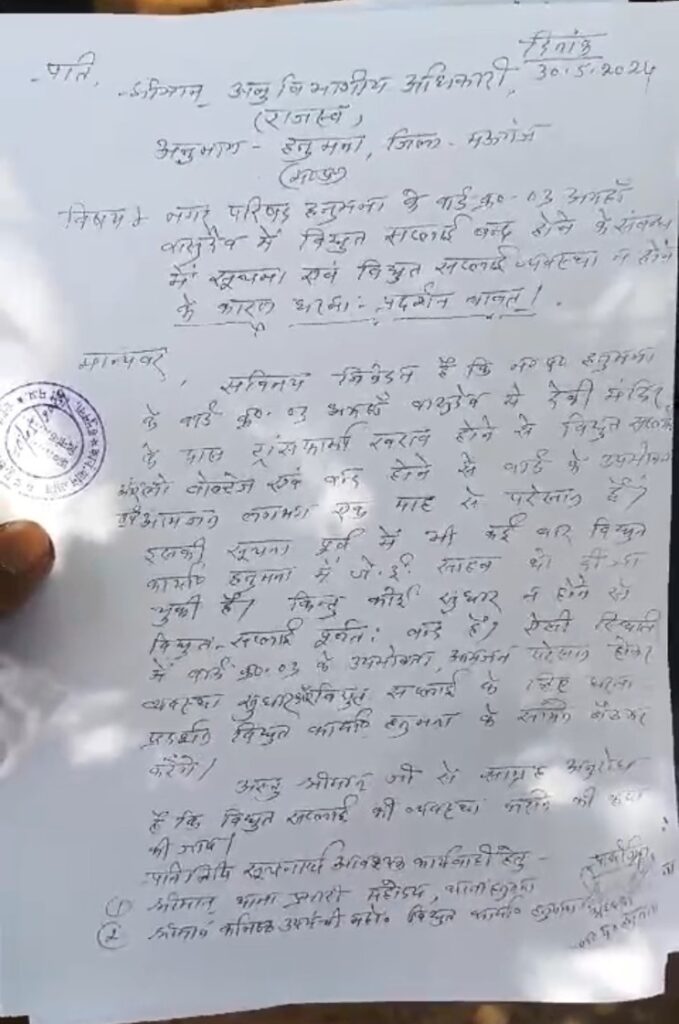 दिनांक
30.5.2024
प्रति,
श्रीमान् अनुविभागीय अधिकारी,
(राजस्व)
अनुभाग - हनुमना, जिला - मऊगंज
(म०प्र०)
विषय :- नगर परिषद हनुमना के वार्ड क्र०-03
वासुदेव में विद्युत सप्लाई बन्द होने के संबन्ध
में सूचना एवं विद्युत सप्लाई व्यवस्था न होने
के कारण धरना - प्रदर्शन बावत् ।
मान्यवर,
सविनय निवेदन है कि न०प० हनुमना
के वार्ड क्र०-03 वासुदेव में देवी मंदिर
के पास ट्रांसफार्मर खराब होने से विद्युत सप्लाई
लो वोल्टेज एवं बंद होने से वार्ड के उपभोक्ता
एवं आमजन लगभग एक माह से परेशान हैं।
इसकी सूचना पूर्व में भी कई बार विद्युत
कार्या० हनुमना में जे.ई. साहब को दी जा
चुकी है। किन्तु कोई सुधार न होने से
विद्युत सप्लाई पूर्णत: बंद है। ऐसी स्थिति
में वार्ड क्र०-03 के उपभोक्ता, आमजन परेशान होकर
व्यवस्था सुधार विद्युत सप्लाई के लिए धरना
प्रदर्शन विद्युत कार्या० हनुमना के सामने बैठकर
करेंगे।
अस्तु श्रीमान् जी से साग्रह अनुरोध
है कि विद्युत सप्लाई की व्यवस्था कराने की कृपा
की जाय।
प्रतिलिपि सूचनार्थ आवश्यक कार्यवाही हेतु -
① श्रीमान् थाना प्रभारी महोदय, थाना हनुमना
② श्रीमान् कनिष्ठ उपयंत्री महो० विद्युत कार्या० हनुमना